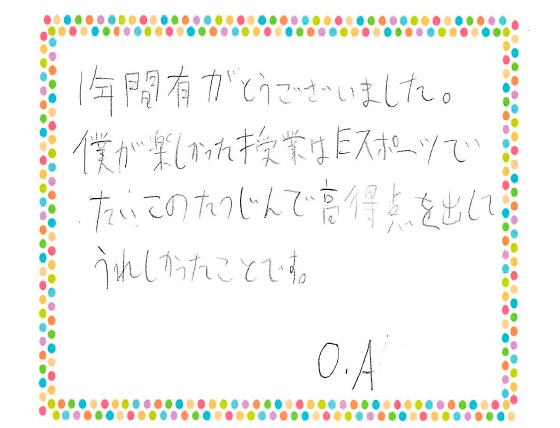 1年間有がとうございました。
僕が楽しかった授業はEスポーツで
たいこのたつじんで高得点を出して
うれしかったことです。
O.A